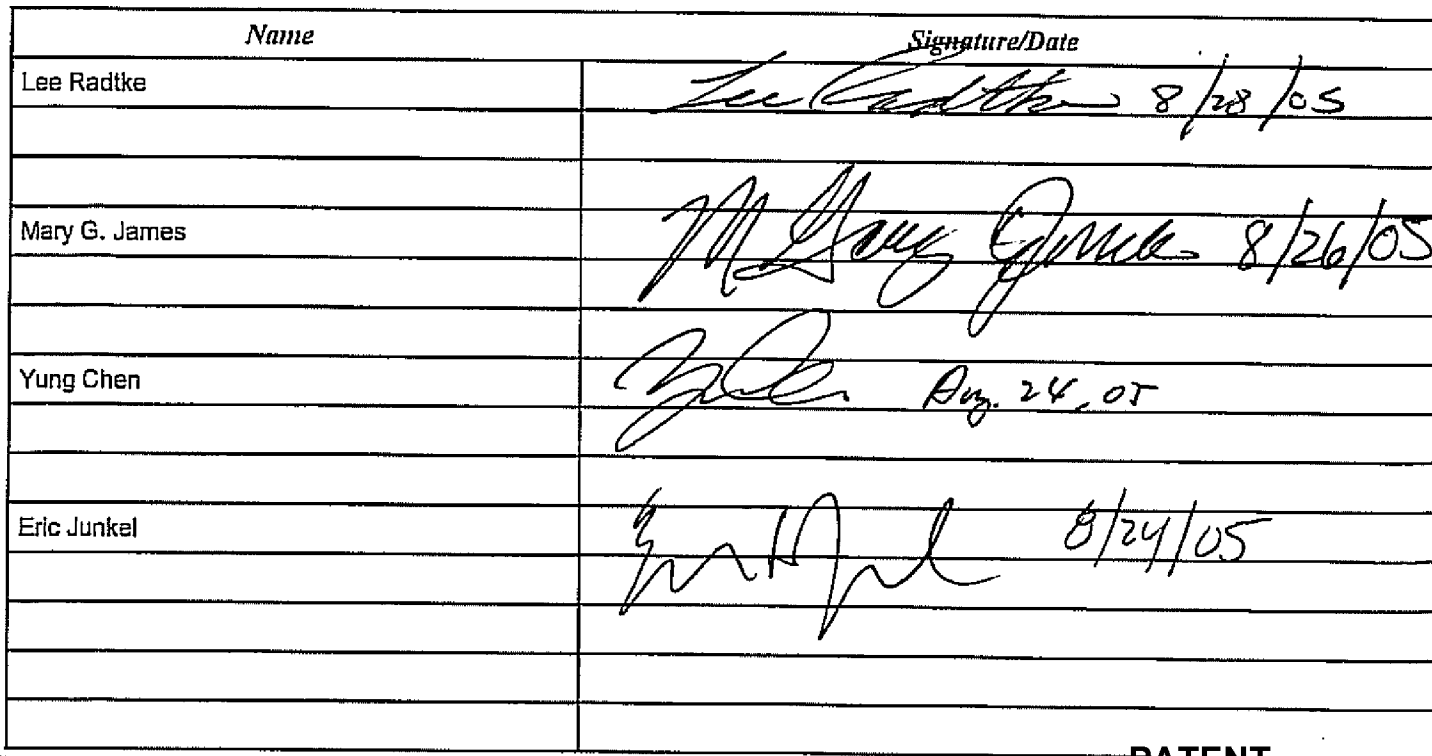 Name Signature/Date
Lee Radtke Lee Radtke 8/28/05
Mary G. James M Gary James 8/26/05
Yung Chen Aug. 24, 05
Eric Junkel 8/24/05
PATENT